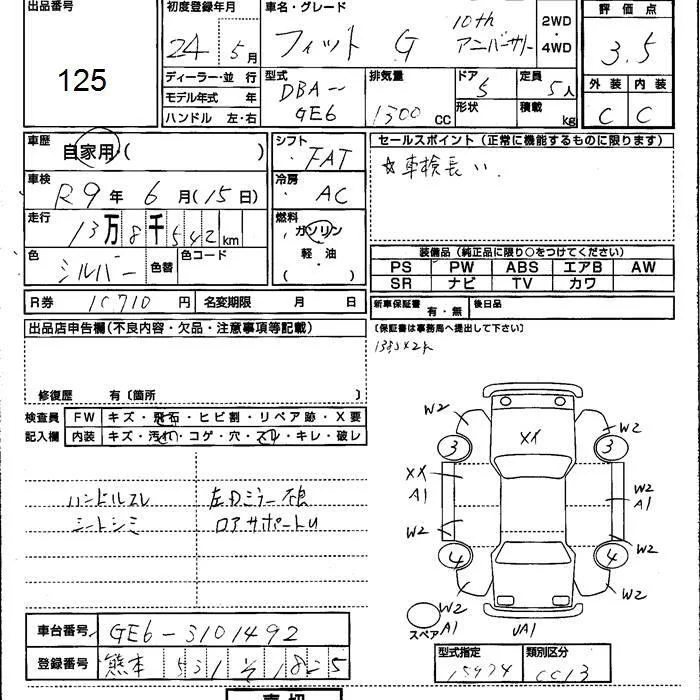 出品番号
125
初度登録年月
24年 5月
車名・グレード
フィット G 10th アニバーサリー
2WD・4WD
評価点
3.5
外装 内装
C C
ディーラー・並行
モデル年式 年
ハンドル 左・右
型式
DBA-GE6
排気量
1300 CC
ドア 5
形状
定員 5人
積載 kg
車歴
自家用( )
車検
R9年 6月(15日)
走行
13万8千542km
色
シルバー
色替
色コード
シフト
FAT
冷房
AC
燃料
ガソリン
軽・油
( )
セールスポイント(正常に機能するものに限ります)
☆車検長い.
装備品(純正品に限り○をつけてください)
PS PW ABS エアB AW
SR ナビ TV カワ
R券 10710円
名変期限 月 日
新車保証書 有・無
後日品
(保証書は事務局へ提出して下さい)
出品店申告欄(不良内容・欠品・注意事項等記載)
修復歴 有〔箇所 〕
検査員記入欄
FW キズ・飛石・ヒビ割・リペア跡・X要
内装 キズ・汚れ・コゲ・穴・スレ・キレ・破レ
ハンドルスレ
シートシミ
左Dミラー不良
ロアサポートU
W2 W2
3 XX 3
XX A1 W2 A1
W2 W2
4 4
W2 W2
スペア A1 UA1
車台番号 GE6-3101492
登録番号 熊本 531 そ 1825
型式指定 15974
類別区分 CC13